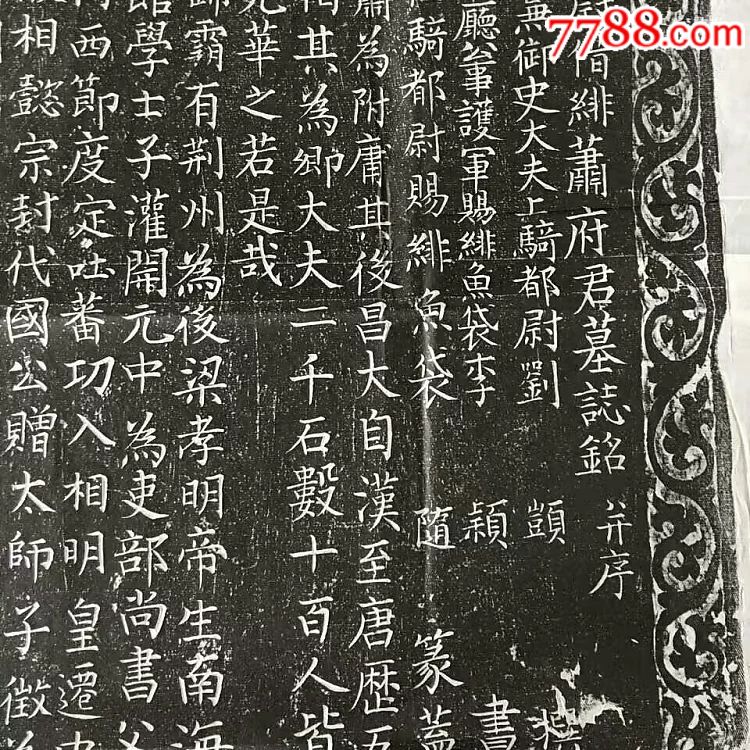 7788.com
尉借緋蕭府君墓誌銘 并序
兼御史大夫上騎都尉劉 顗 撰
廳公事護軍賜緋魚袋李 穎 書
騎都尉賜緋魚袋 隨 篆蓋
蕭為附庸其後昌大自漢至唐歷五
相其為卿大夫二千石數十百人皆
光華之若是哉
歸霸有荆州為後梁孝明帝生南海
館學士子灌開元中為吏部尚書父
西節度定吐蕃功入相明皇遷中
相懿宗封代國公贈太師子徵